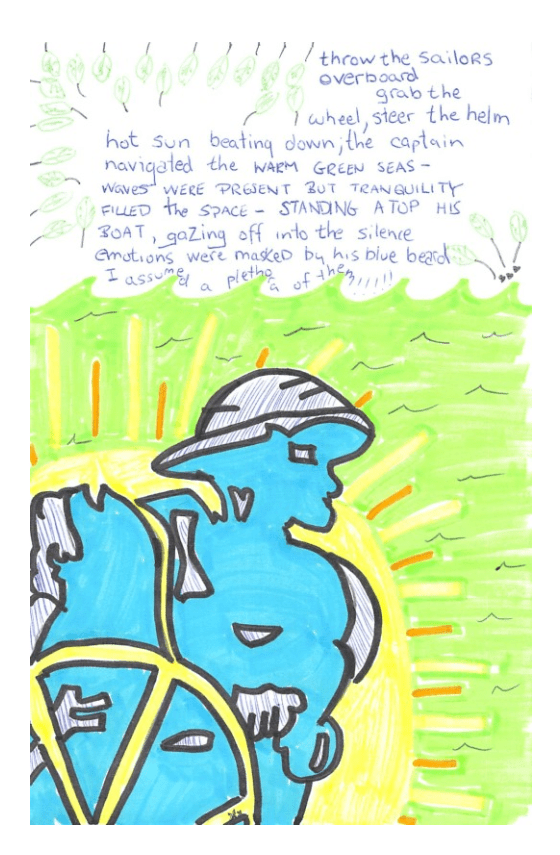 throw the sailoRs
overboard
grab the
wheel, steer the helm
hot sun beating down, the captain
navigated the WARM GREEN SEAS -
waves WERE PRESENT BUT TRANQUILITY
FILLED the SPACE - STANDING ATOP HIS
BOAT, gaZing off into the silence
emotions were masKed by his blue beard
I assumed a plethora of them,,,,,!!